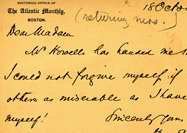 EDITORIAL OFFICE OF
The Atlantic Monthly,
BOSTON.
18 Octo
(returning mss.)
Dear Madam
Mr Howells has handed me t
I could not forgive myself if
others as miserable as I have
myself!
Sincerely yours